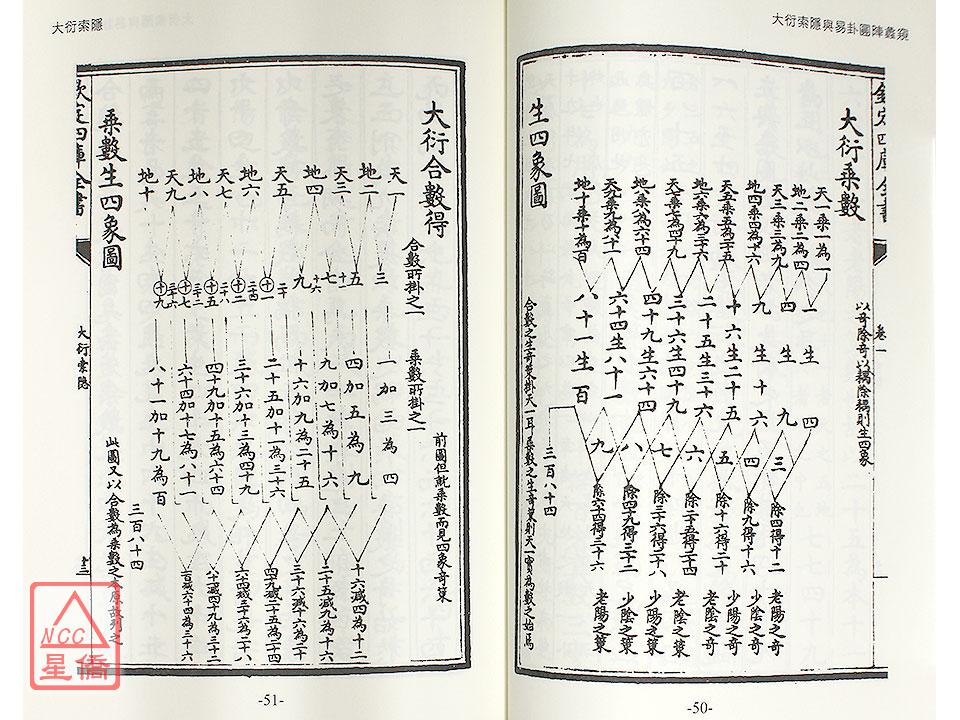 大衍索隱與易卦圓陣蠡窺
欽定四庫全書
卷一
大衍乘數
生四象圖
以奇除奇以耦除耦則生四象
天一乘一為一
地二乘二為四
天三乘三為九
地四乘四為十六
天五乘五為二十五
地六乘六為三十六
天七乘七為四十九
地八乘八為六十四
天九乘九為八十一
地十乘十為百
一生四
四生九
九生十六
十六生二十五
二十五生三十六
三十六生四十九
四十九生六十四
六十四生八十一
八十一生百
三
四
五
六
七
八
九
除四得十二
除九得十六
除十六得二十
除二十五得二十四
除三十六得二十八
除四十九得三十二
除六十四得三十六
老陽之奇
少陰之奇
少陽之奇
老陰之奇
老陰之策
少陽之策
少陰之策
老陽之策
三百八十四
合數之生奇策掛天一耳乘數之生奇策則天一實為數之始焉
-50-
大衍索隱
大衍合數得
乘數生四象圖
合數所掛之一
乘數所掛之一
前圖但就乘數而見四象奇策
天一
地二
天三
地四
天五
地六
天七
地八
天九
地十
三
五
十一
九
十六
十一
二十
十二
二十四
十五
二十八
十七
三十二
十九
三十六
一加三為四
四加五為九
九加七為十六
十六加九為二十五
二十五加十一為三十六
三十六加十三為四十九
四十九加十五為六十四
六十四加十七為八十一
八十一加十九為百
十六減四為十二
二十五減九為十六
三十六減十六為二十
四十九減二十五為二十四
六十四減三十六為二十八
八十一減四十九為三十二
一百減六十四為三十六
三百八十四
此圖又以合數為乘數之本原故列之
欽定四庫全書
大衍索隱
NCC
星僑
-51-